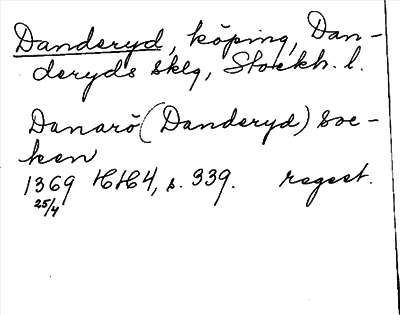 Danderyd, köping, Dan-
deryds sklg, Stockh. l.
Danarö (Danderyd) soc-
ken
1369 HH4, s. 339. regest.
25/4